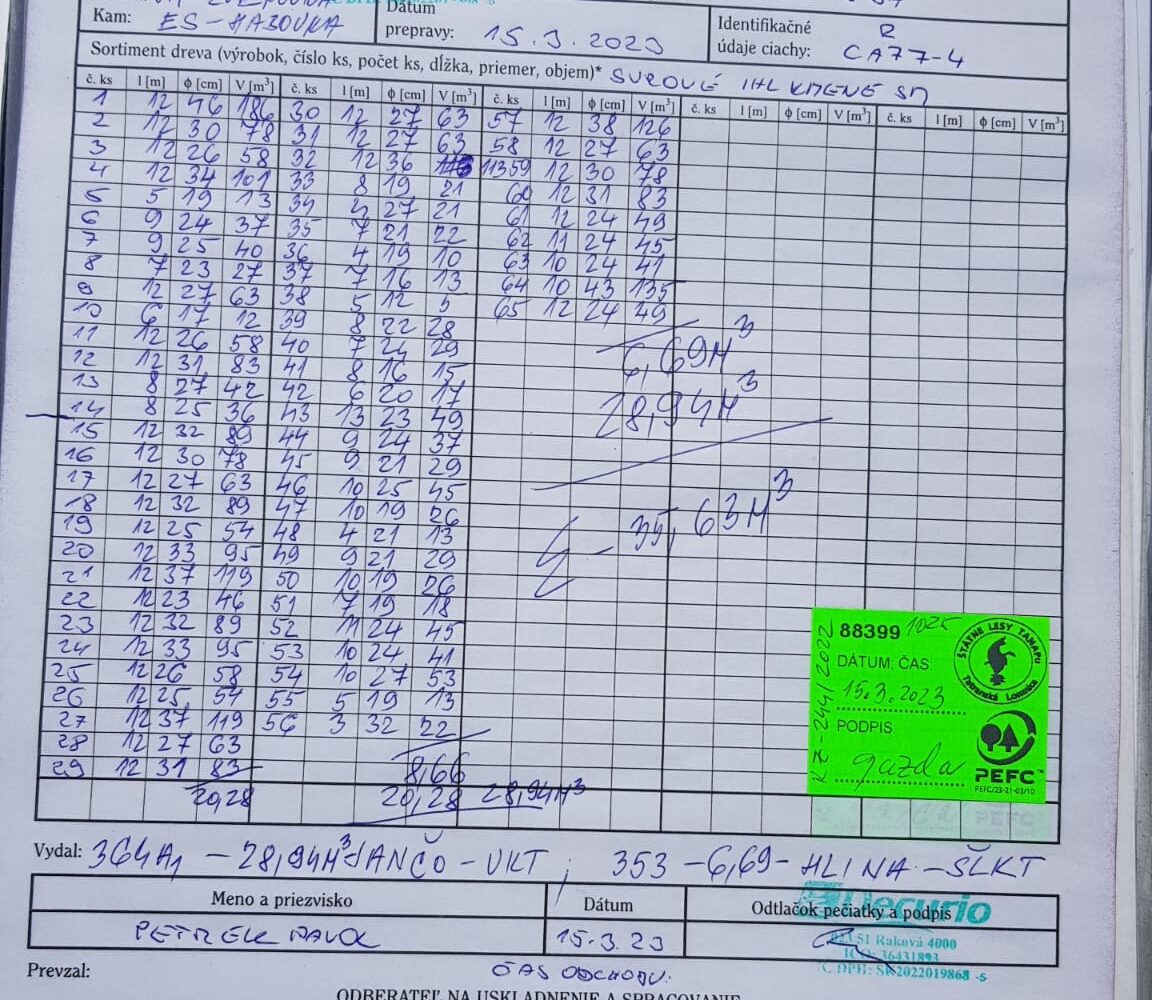 Kam: ES-HABOVKA Dátum prepravy: 15.3.2023 Identifikačné údaje ciachy: R CA77-4
Sortiment dreva (výrobok, číslo ks, počet ks, dĺžka, priemer, objem)* SUROVÉ IHL KMENE SM
č. ks l [m] ϕ [cm] V [m³] č. ks l [m] ϕ [cm] V [m³] č. ks l [m] ϕ [cm] V [m³] č. ks l [m] ϕ [cm] V [m³] č. ks l [m] ϕ [cm] V [m³]
1 12 46 186 30 12 27 63 57 12 38 126
2 12 30 78 31 12 27 63 58 12 27 63
3 12 26 58 32 12 36 113 59 12 30 78
4 12 34 101 33 8 19 21 60 12 31 83
5 5 19 13 34 4 27 21 61 12 24 49
6 9 24 37 35 7 21 22 62 11 24 45
7 9 25 40 36 4 19 10 63 10 24 41
8 7 23 27 37 7 16 13 64 10 43 135
9 12 27 63 38 5 12 5 65 12 24 49
10 6 17 12 39 8 22 28
11 12 26 58 40 7 24 29 6,69M³
12 12 31 83 41 8 16 15
13 8 27 42 42 6 20 17 28,94M³
14 8 25 36 43 13 23 49
15 12 32 89 44 9 24 37
16 12 30 78 45 9 21 29
17 12 27 63 46 10 25 45
18 12 32 89 47 10 19 26
19 12 25 54 48 4 21 13 35,63M³
20 12 33 95 49 9 21 29
21 12 37 119 50 10 19 26
22 12 23 46 51 7 19 18
23 12 32 89 52 11 24 45
24 12 33 95 53 10 24 41
25 12 26 58 54 10 27 53
26 12 25 54 55 5 19 13
27 12 37 119 56 3 32 22
28 12 27 63
29 12 31 83 8,66
20,28 20,28 28,94M³
88399 1025
ŠTÁTNE LESY TANAPu
Tatranská Lomnica
KZ-244/2022
DÁTUM, ČAS
15.3.2023
PODPIS:
gazda
PEFC™
PEFC/23-21-03/10
Vydal: 364A1 - 28,94M³ JANČO - VKT ; 353 - 6,69 - HLINA - ŠLKT
Meno a priezvisko Dátum Odtlačok pečiatky a podpis
PETREK PAVOL 15.3.23
Decurio
023 51 Raková 4000
IČO: 36431893
IČ DPH: SK2022019868 -5
Prevzal: ČAS ODCHODU:
ODBERATEĽ NA USKLADNENIE A SPRACOVANIE